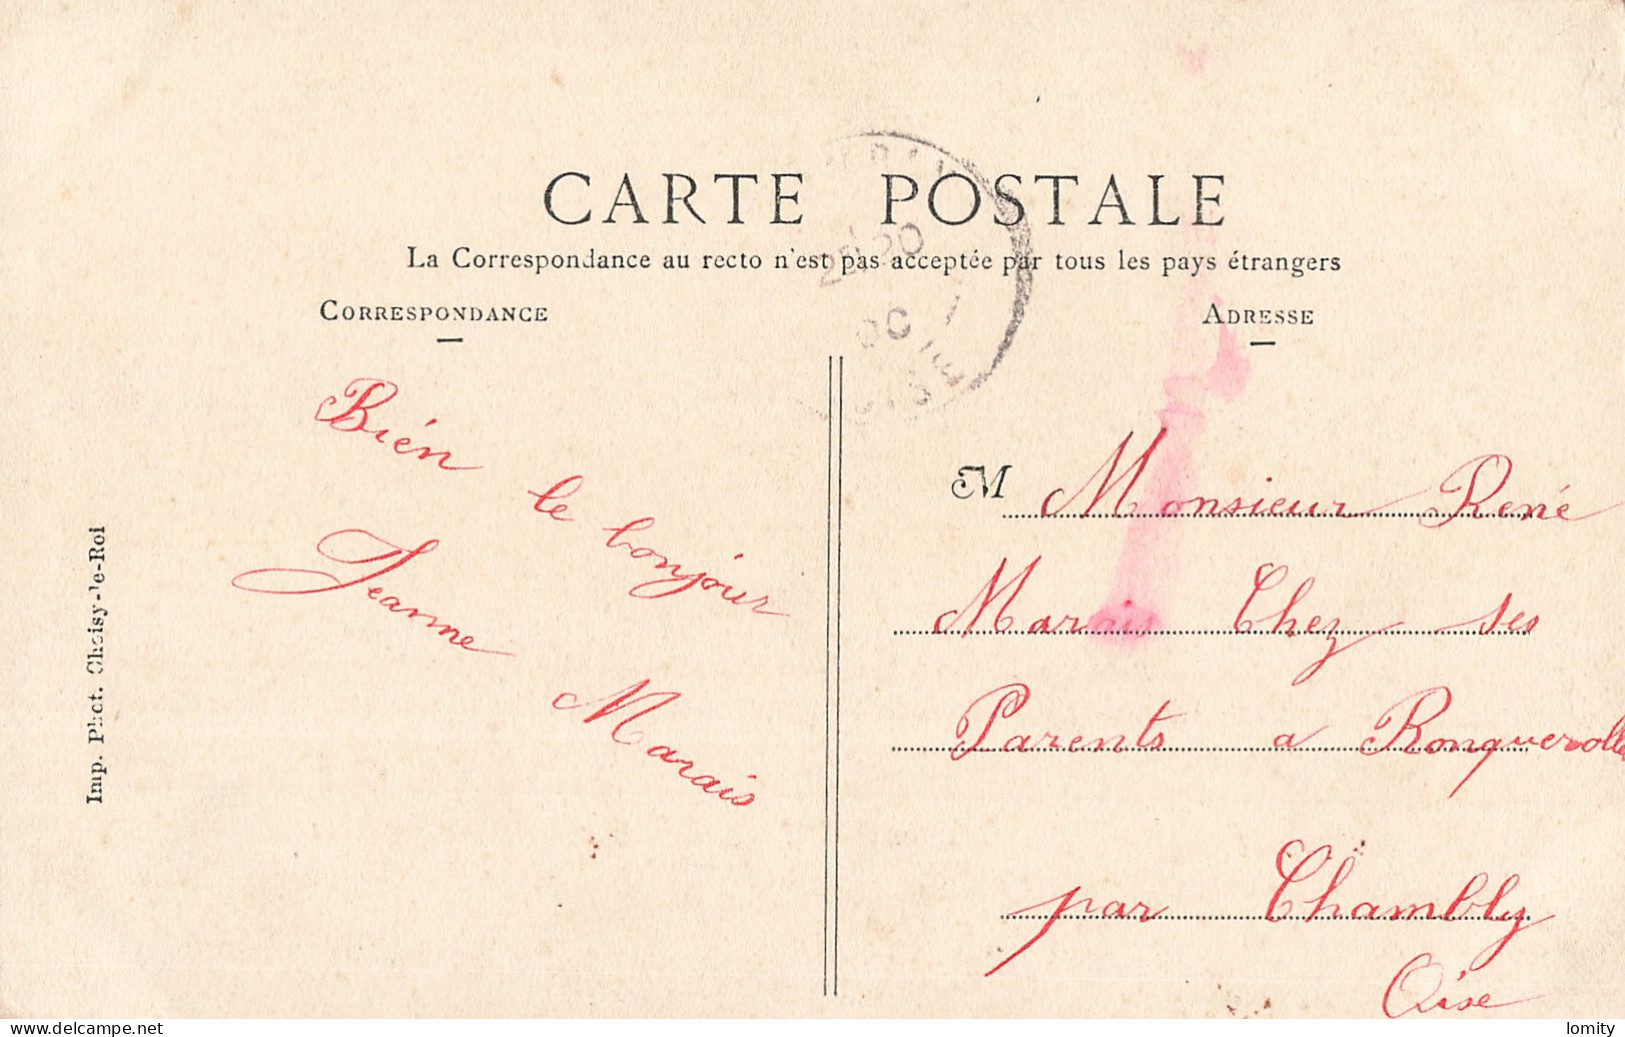 CARTE POSTALE
La Correspondance au recto n'est pas acceptée par tous les pays étrangers
CORRESPONDANCE
ADRESSE
Bién le bonjour
Jeanne Marais
M Monsieur René
Marais Chez ses
Parents a Ronquerolles
par Chambly
Oise
Imp. Phot. Choisy-le-Roi
20
OISE
website: delcampe.net
lomity